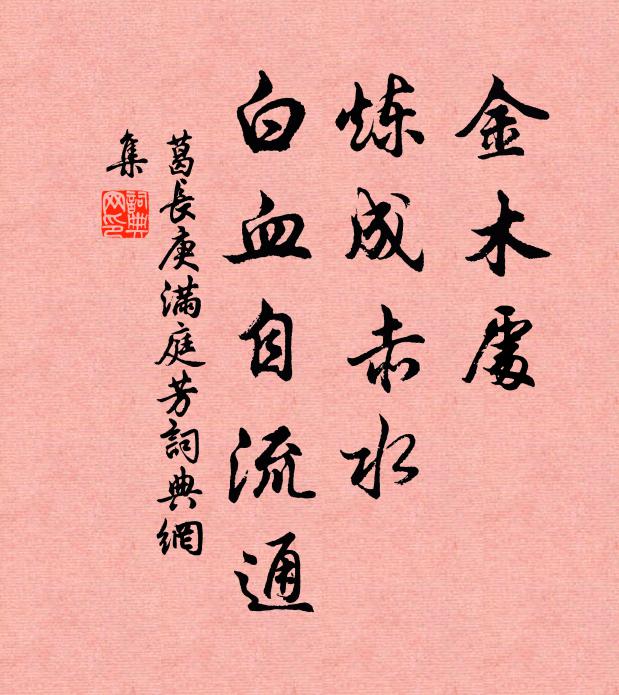 金木處
炼成赤水
白血自流通
葛長庚滿庭芳詞典網
集
詞典
网印